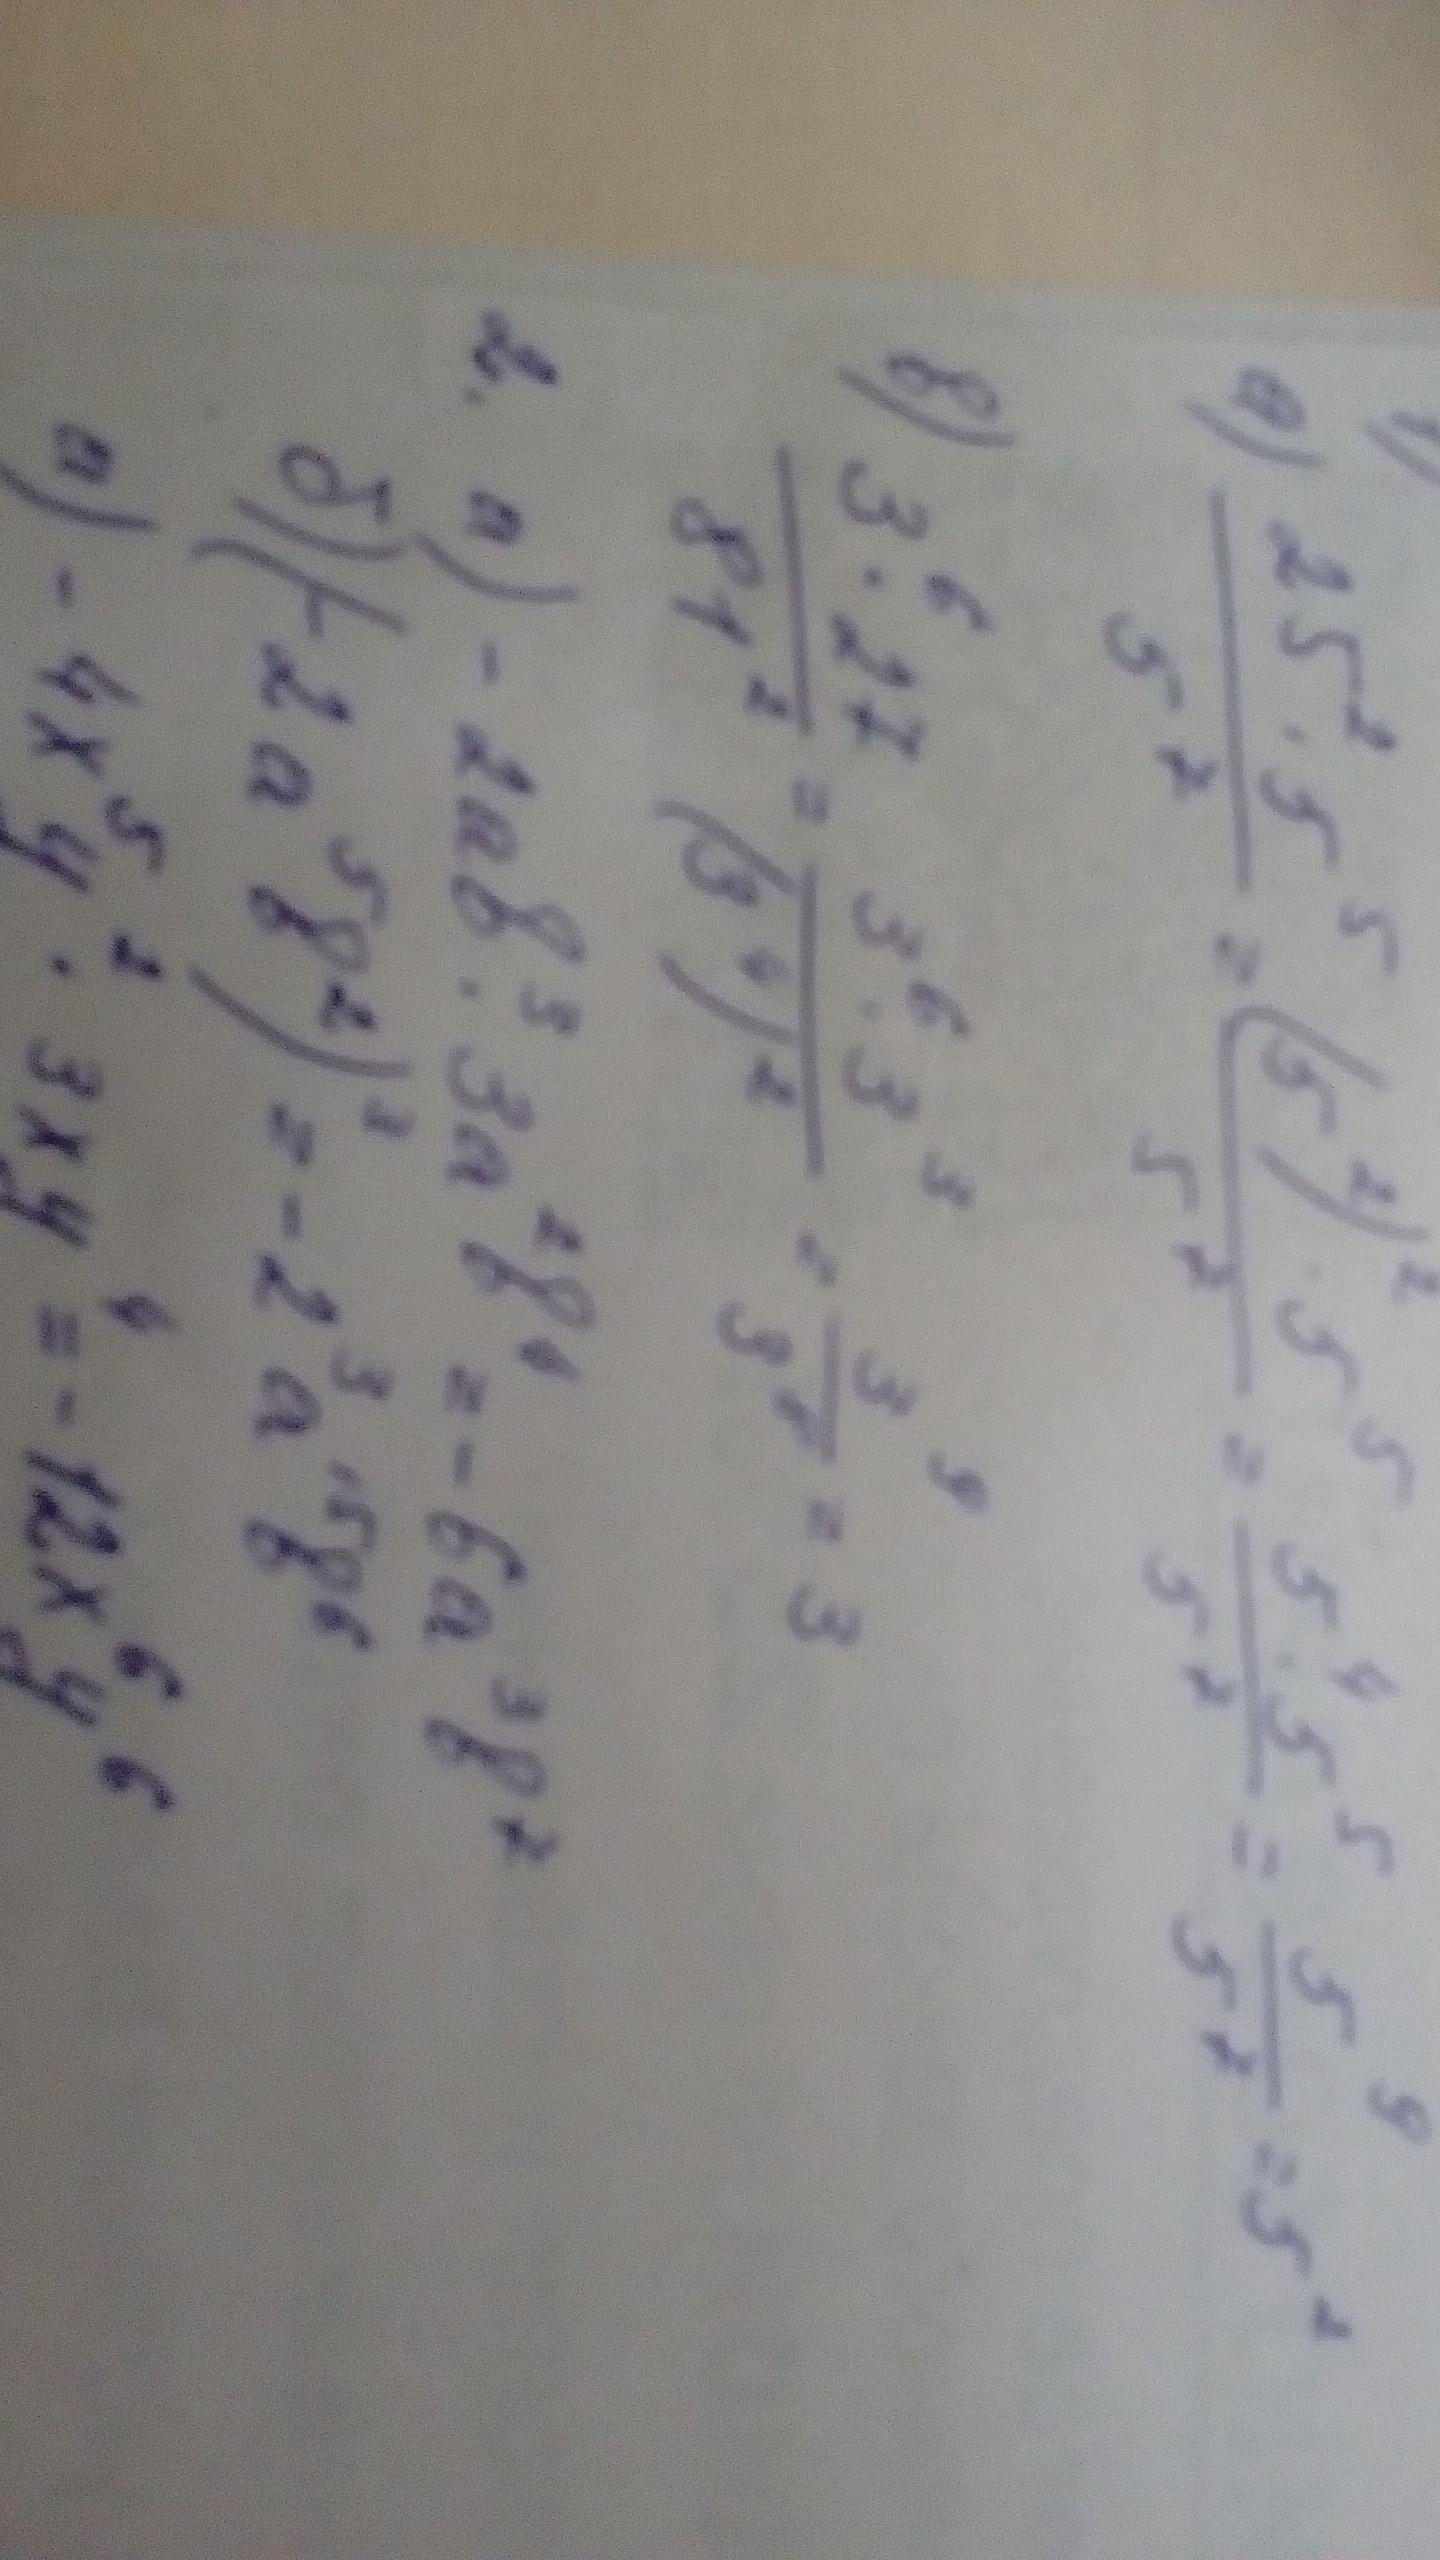 1)
а) 25² · 5⁵ / 5² = (5²)² · 5⁵ / 5² = 5⁴ · 5⁵ / 5² = 5⁹ / 5² = 5²
в) 3⁶ · 27 / 81² = 3⁶ · 3³ / (3⁴)² = 3⁹ / 3⁸ = 3
2. а) - 2ab³ · 3a²b⁴ = - 6a³b⁷
б) (-2a⁵b²)³ = - 2³a¹⁵b⁶
а) - 4x⁵y² · 3xy⁴ = - 12x⁶y⁶